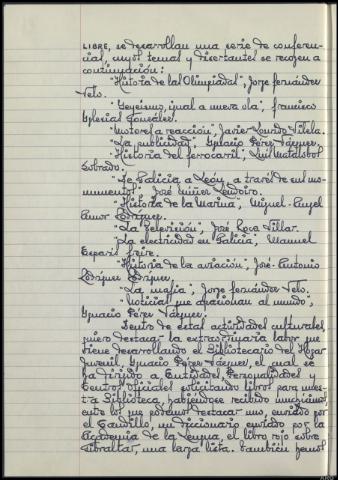 LIBRE, se desarrollan una serie de conferen-
cias, cuyos temas y disertantes se recogen a
continuación:
"Historia de las Olimpiadas", Jorge Fernández
Veto.
"Yeyeismo, igual a nueva ola", Francisco
Yglesias González.
"Motores a reacción", Javier Lourido Vilela.
"La publicidad", Ygnacio Pérez Vázquez.
"Historia del ferrocarril", Luis Matalobos
Sobrado.
"De Galicia a León, a través de sus mo-
numentos", José Núñez Lendoiro.
"Historia de la Marina", Miguel-Angel
Amor Rodríguez.
"La Televisión", José Roca Villar.
"La electricidad en Galicia", Manuel
Esparis Freire.
"Historia de la aviación", José-Antonio
Rodríguez Rodríguez.
"La mafia", Jorge Fernández Veto.
"Noticias que apasionan al mundo",
Ygnacio Pérez Vázquez.
Dentro de estas actividades culturales,
quiero destacar la extraordinaria labor que
viene desarrollando el Bibliotecario del Hogar
Juvenil, Ygnacio Pérez Vázquez, el cual se
ha dirigido a Entidades, Personalidades y
Centros oficiales solicitando libros para nues-
tra Biblioteca, habiéndose recibido muchísimos,
entre los que podemos destacar uno, enviado por
el Caudillo, un diccionario enviado por la
Academia de la Lengua, el libro rojo sobre
Gibraltar, una larga lista. También hemos